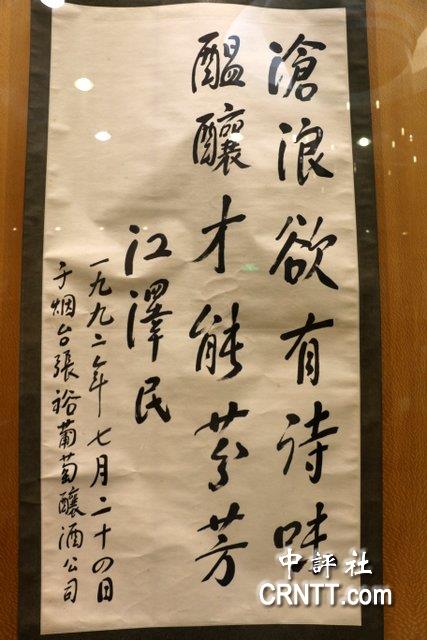 滄浪欲有诗味
醖釀才能芬芳
江澤民
一九九二年七月二十四日
于烟台張裕葡萄釀酒公司
中評社
CRNTT.com